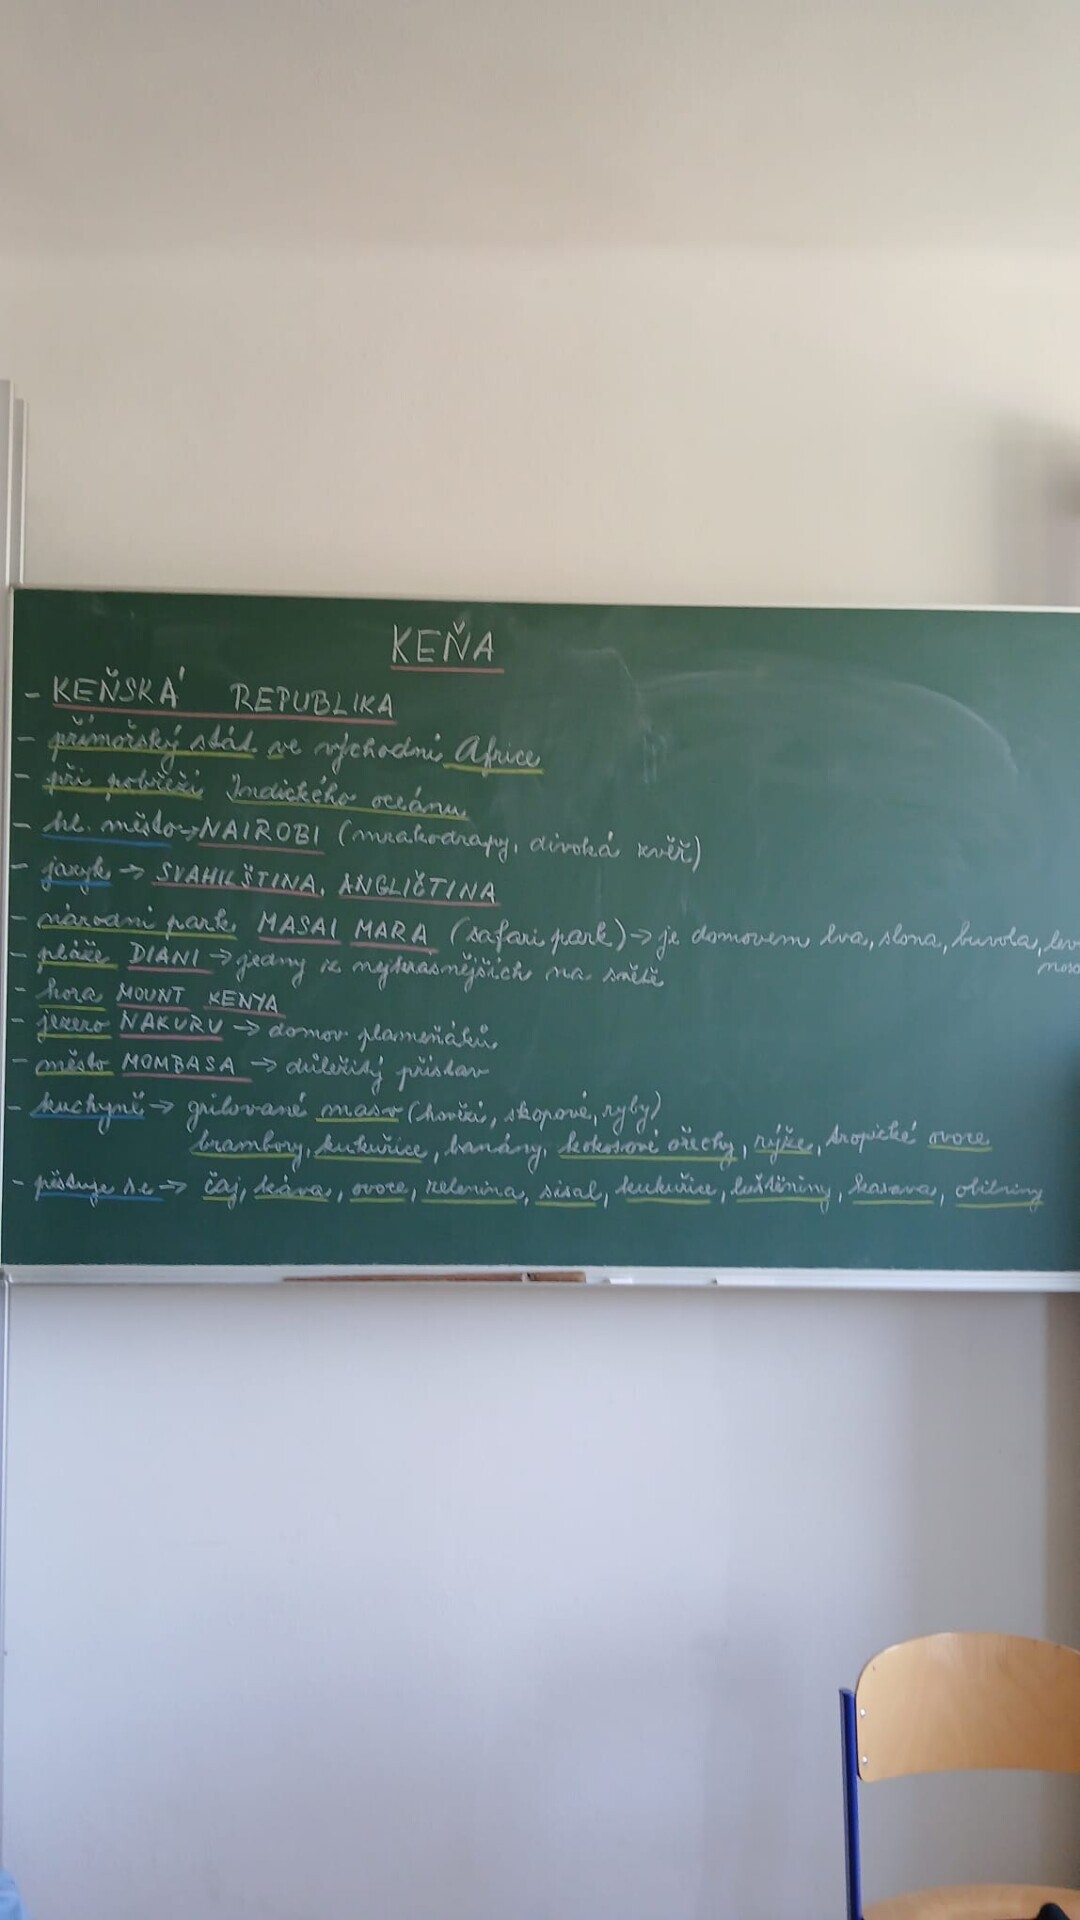 KEŇA
- KEŇSKÁ REPUBLIKA
- přímořský stát ve východní Africe
- při pobřeží Indického oceánu
- hl. město → NAIROBI (mrakodrapy, divoká zvěř)
- jazyk → SVAHILŠTINA, ANGLIČTINA
- národní park MASAI MARA (safari park) → je domovem lva, slona, buvola, lev
noso
- pláže DIANI → jedny z nejkrásnějších na světě
- hora MOUNT KENYA
- jezero NAKURU → domov plameňáků
- město MOMBASA → důležitý přístav
- kuchyně → grilované maso (hovězí, skopové, ryby)
brambory, kukuřice, banány, kokosové ořechy, rýže, tropické ovoce
- pěstuje se → čaj, káva, ovoce, zelenina, sisal, kukuřice, luštěniny, kasava, obilniny